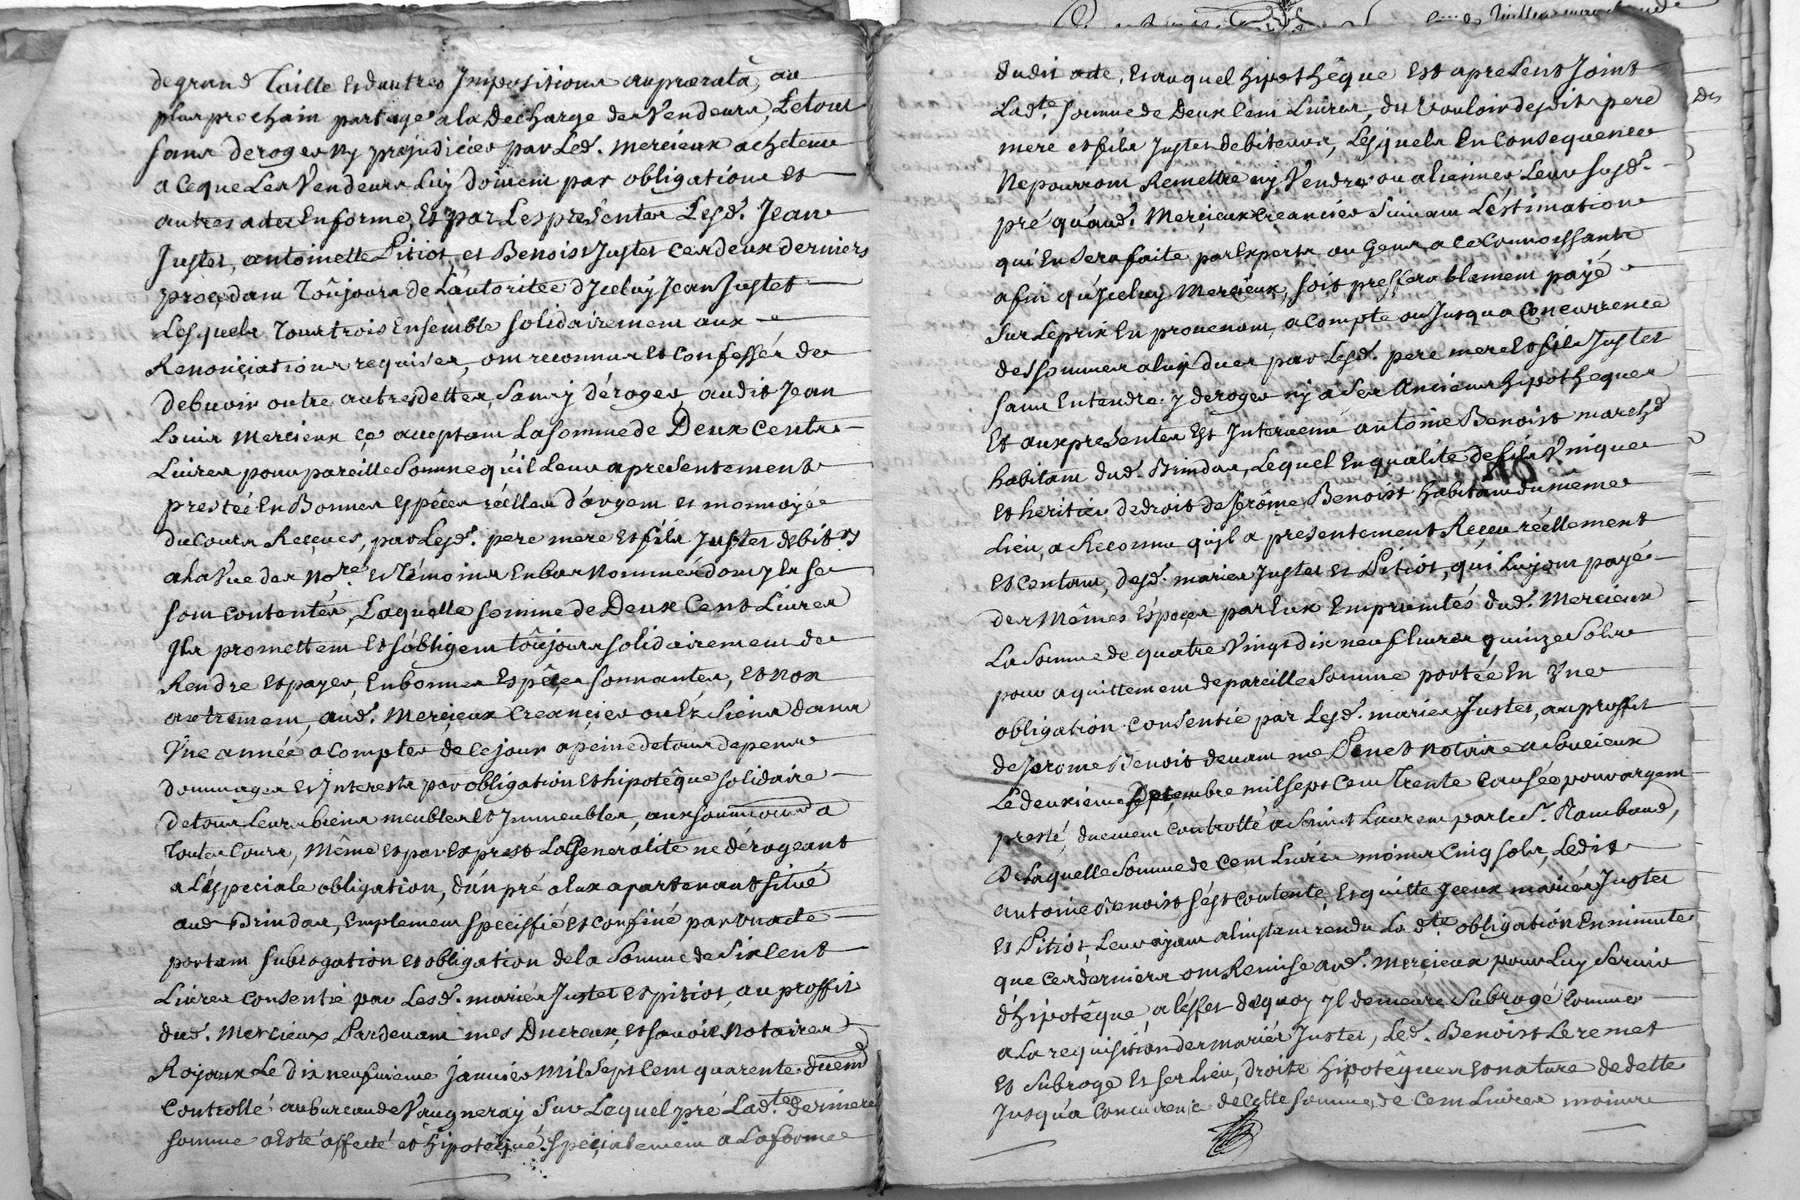 degrand Taille et dautres Impositions auprorata, au
plus prochain partage a la Decharge des Vendeurs, Letout
sans deroger ny prejudicier par Led. Mercieux acheteur
a ceque Les Vendeurs Luy doivent par obligations et
autres actes En forme, Et par Les presentes Lesd. Jean
Justet, antoinette Pitiot, et Benoist Justet ces deux derniers
procedant Toûjours de L'autoritée d'Iceluy Jean Justet
Lesquels Tous trois Ensemble solidairement aux
Renonciations requises, ont reconnus et confessés de
debuoir outre autres dettes, sans y déroger, audit Jean
Louis Mercieux ce acceptant La somme de Deux Cents
Livres pour pareille Somme qu'il Leur a presentement
prestée En Bonnes Espêces réelles d'argent et monnoyé
du Cours Reçeues, par Lesd. pere mere et fils Justet debitrs
a la Vüe des Nore. et Témoins En bas Nommés dont ils se
sont contentés, Laquelle somme de Deux Cent Livres
Ils promettent et s'obligent toûjours solidairement de
Rendre et payer, En bonnes Espêces sonnantes, et non
autrement, aud. Mercieux Creancier ou Ex Siens dans
Vne année a compter de ce jour a peine de tous depens
dommages et Interests par obligation et hipotêque solidaire
de tous Leurs biens meubles et Immeubles, aux soumissions a
Toutes Cours, Même et par Exprest La Generalité ne dérogeant
a L'éspeciale obligation, d'un pré a Eux apartenant situé
aud Brindas, Emplement speciffié et confiné par un acte
portant subrogation et obligation de la Somme de Six Cent
Livres consentie par Lesd. mariés Justet et pitiot, au proffit
dud. Mercieux Pardevant mes Ducreux, et savoie Notaires
Rojaux Le dix neufvieme janvier Mil Sept Cent quarente düemd
Controllé au bureau de Vaugneray Sur Lequel pré Lad.te derniere
somme a Esté affecté et hipotéqué Spécialement a La forme
dudit acte, Et auquel hipothêque Est apresent Joint
Lad.te somme de Deux Cent Livres, du Vouloir desdits pere
mere et fils Justet debiteurs, Lesquels En Consequence
Ne pourront Remettre ny Vendre ou aliener Leur susd.
pré qu'aud. Mercieux Creancier Suivant L'éstimation
qui En Sera faite par Experts ou Gens a ce Connoissants
afin qu'Iceluy Mercieux, soit prefferablement payé
Sur Le prix En provenant, a Compte ou Jusqu'a Concurrence
des Sommes a luy dues par Lesd. pere mere et fils Justet
sans Entendre y deroger ny a Ses Anciens hipotheques
Et aux presentes Est Intervenu antoine Benoist marchd
habitant dud. Brindas, Lequel En qualité de fils Vnique
et heritier de droit de Jerôme Benoist habitant du même
Lieu, a Reconnu qu'il a presentement Reçeu réellement
et contant, desd. mariés Justet et Pitiot, qui Luy ont payé
des Mêmes Espèces par Eux Empruntés dud. Mercieux
La Somme de quatre Vingt dix neuf Livres quinze Sols
pour aquittement de pareille Somme portée En Vne
obligation consentie par Lesd. mariés Justet, au proffit
de Jerome Benoit devant me Benet Notaire a Soucieux
Le deuxieme Septembre mil sept Cent Trente Causée pour argent
presté, duement Controllé a Saint Laurent par le Sr. Rambaud,
De Laquelle Somme de Cent Livres moins Cinq sols, Ledit
antoine Benoist s'ést contenté, Et quitte Iceux mariés Justet
et Pitiot, Leur ayant a linstant rendu La dte obligation En minute
que ces derniers ont Remise aud. Mercieux pour Luy Servir
d'hipotêque, a l'éffet dequoy Il demeure Subrogé Comme
a La requisition des mariés Justet, Led. Benoist Le remet
et subroge Et son Lieu, droits hipotêques et nature de dette
Jusqu'a Concurence de Cette somme de Cent Livres moins